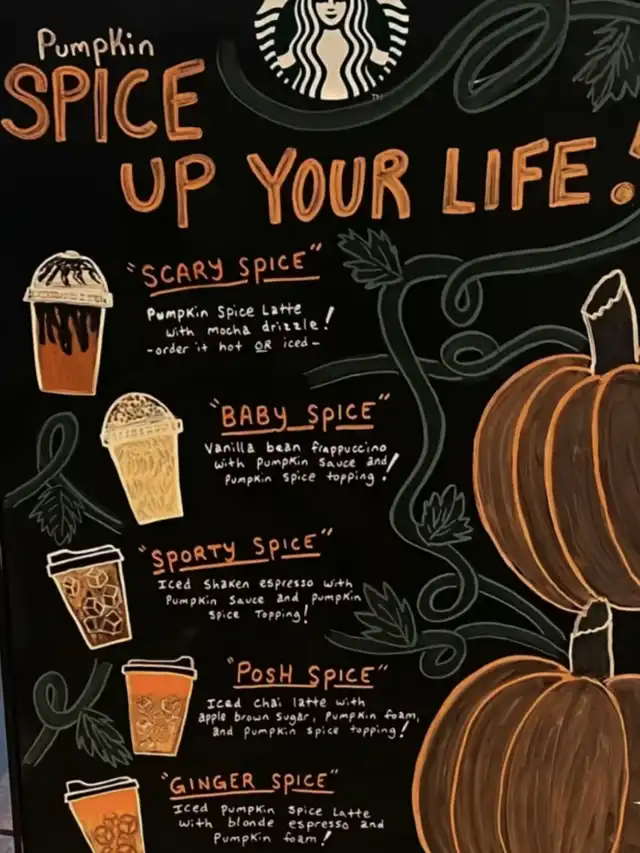 Pumpkin
SPICE
UP YOUR LIFE!
TM
"SCARY SPICE"
Pumpkin Spice Latte
with mocha drizzle!
-order it hot OR iced-
"BABY SPICE"
Vanilla bean frappuccino
with Pumpkin Sauce and
Pumpkin Spice topping!
"SPORTY SPICE"
Iced Shaken espresso with
Pumpkin Sauce and pumpkin
Spice Topping!
"POSH SPICE"
Iced Chai latte with
apple brown Sugar, Pumpkin foam,
and Pumpkin Spice topping!
"GINGER SPICE"
Iced Pumpkin Spice Latte
with blonde espresso and
Pumpkin foam!